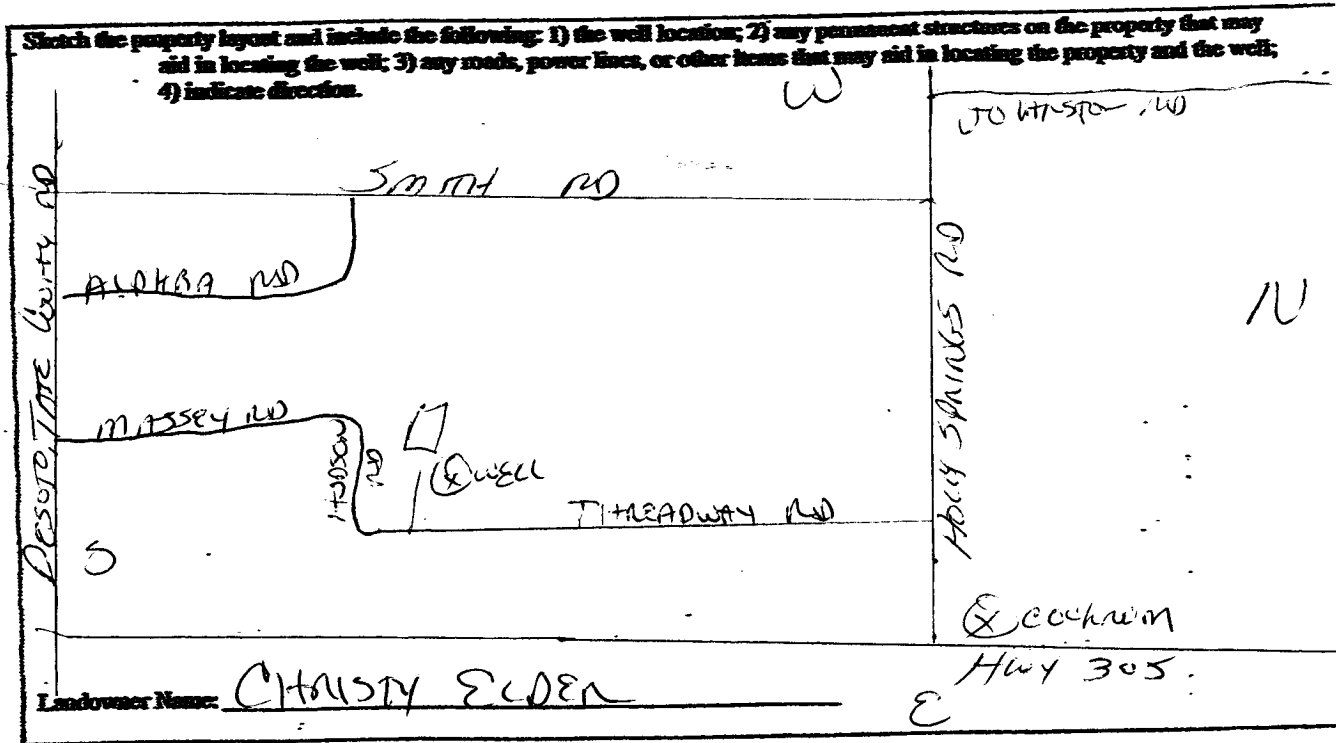 Sketch the property layout and include the following: 1) the well location; 2) any permanent structures on the property that may
aid in locating the well; 3) any roads, power lines, or other items that may aid in locating the property and the well;
4) indicate direction.
W
JOHNSTON RD
SMITH RD
DESOTO, TATE COUNTY RD
ALPHBA RD
HOLLY SPRINGS RD
N
MASSEY RD
HUDSON RD
WELL
THREADWAY RD
S
COCKRUM
HWY 305
Landowner Name: CHRISTY ELDER
E